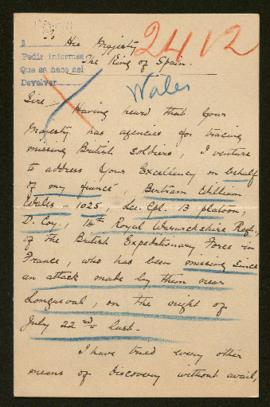 To His Majesty
The King of Spain.
2412
Pedir informes
Que se hace así
Devolver
Wales
Sire - Having heard that Your
Majesty has agencies for tracing
missing British soldiers, I venture
to address Your Excellency on behalf
of my fiancé, Bertram William
Wales - 1025, Lce. Cpl. B platoon,
D. Coy, 14th Royal Warwickshire Regt.,
of the British Expeditionary Force in
France, who has been missing since
an attack made by them near
Longueval, on the night of
July 22nd last.
I have tried every other
means of discovery without avail,